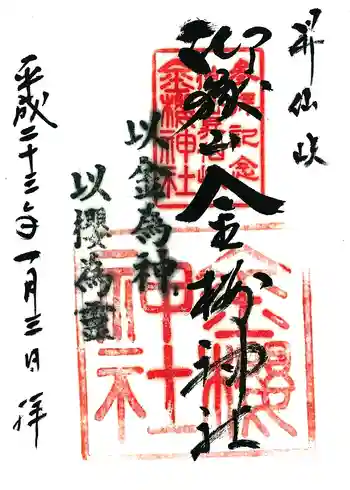 昇仙峡
御嶽山 金櫻神社
参拝記念
昇仙峡
金櫻神社
以金為神
以櫻為霊
金櫻神社
平成二十三年一月三日 拝